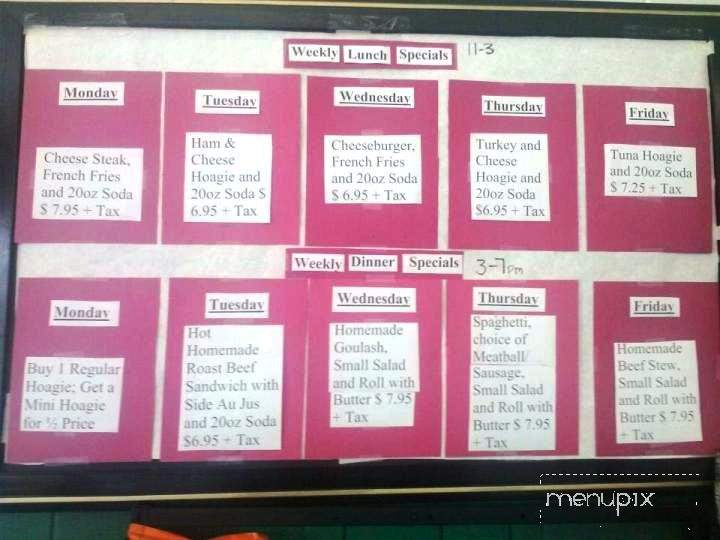 Weekly Lunch Specials 11-3
Monday
Cheese Steak,
French Fries
and 20oz Soda
$ 7.95 + Tax
Tuesday
Ham &
Cheese
Hoagie and
20oz Soda $
6.95 + Tax
Wednesday
Cheeseburger,
French Fries
and 20oz Soda
$ 6.95 + Tax
Thursday
Turkey and
Cheese
Hoagie and
20oz Soda
$6.95 + Tax
Friday
Tuna Hoagie
and 20oz Soda
$ 7.25 + Tax
Weekly Dinner Specials 3-7pm
Monday
Buy 1 Regular
Hoagie; Get a
Mini Hoagie
for ½ Price
Tuesday
Hot
Homemade
Roast Beef
Sandwich with
Side Au Jus
and 20oz Soda
$6.95 + Tax
Wednesday
Homemade
Goulash,
Small Salad
and Roll with
Butter $ 7.95
+ Tax
Thursday
Spaghetti,
choice of
Meatball/
Sausage,
Small Salad
and Roll with
Butter $ 7.95
+ Tax
Friday
Homemade
Beef Stew,
Small Salad
and Roll with
Butter $ 7.95
+ Tax
menupix